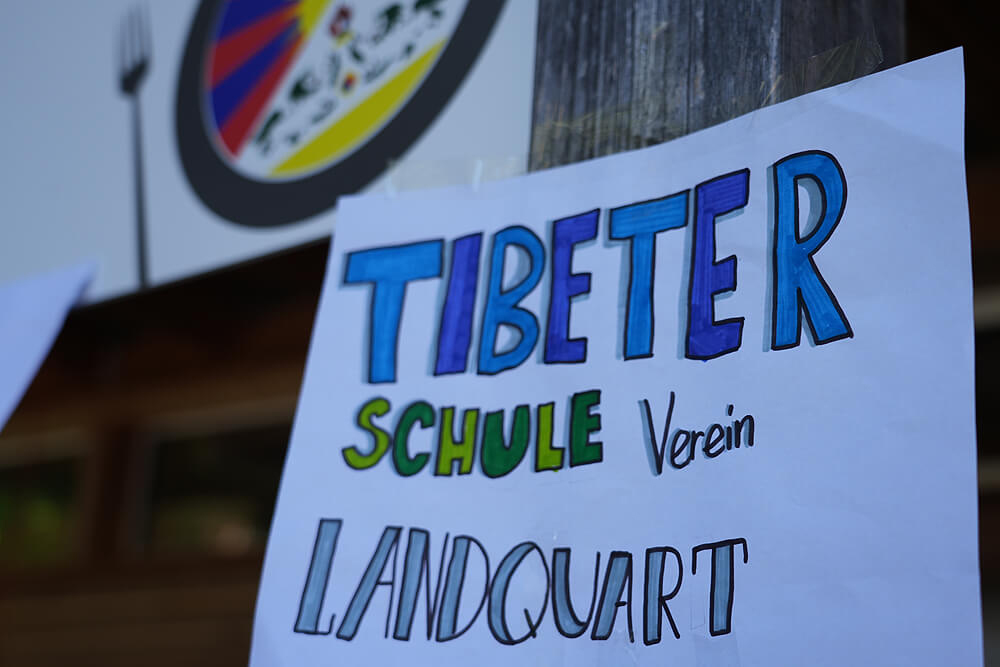 TIBETER
SCHULE Verein
LANDQUART